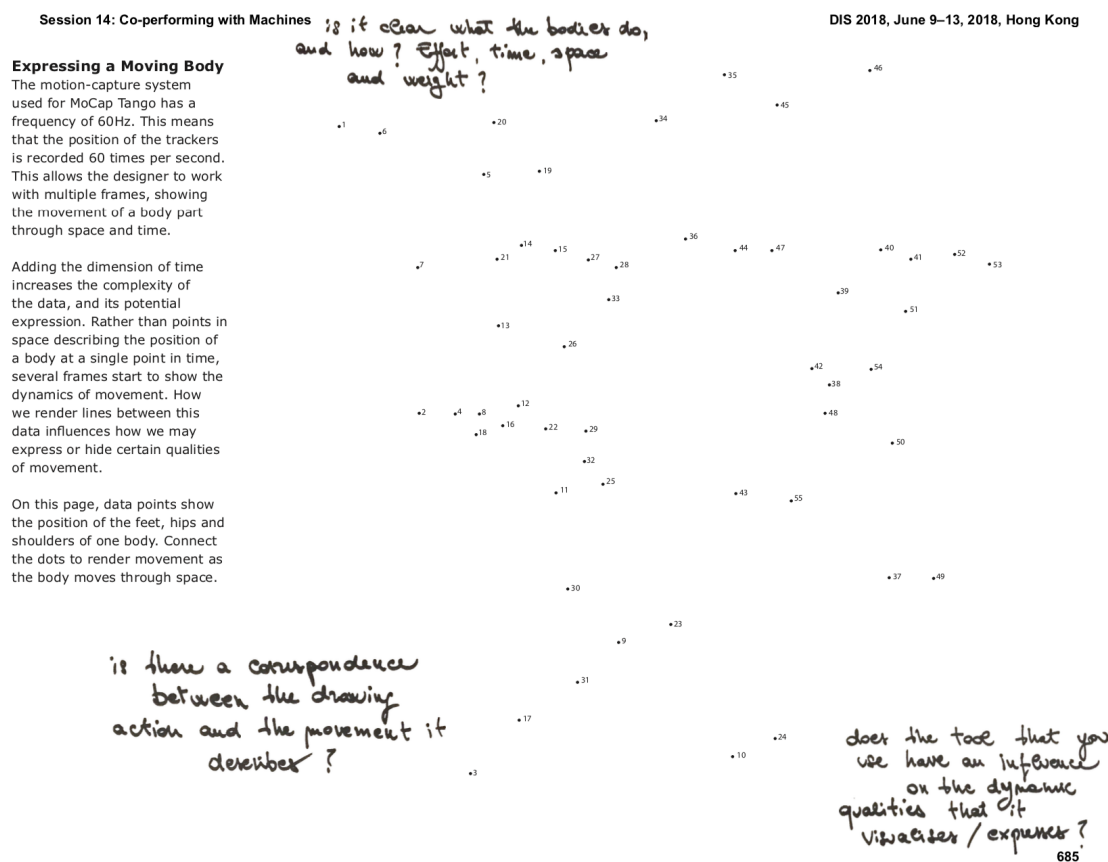 Session 14: Co-performing with Machines
DIS 2018, June 9–13, 2018, Hong Kong
is it clear what the bodies do,
and how? Effort, time, space
and weight?
Expressing a Moving Body
The motion-capture system
used for MoCap Tango has a
frequency of 60Hz. This means
that the position of the trackers
is recorded 60 times per second.
This allows the designer to work
with multiple frames, showing
the movement of a body part
through space and time.
Adding the dimension of time
increases the complexity of
the data, and its potential
expression. Rather than points in
space describing the position of
a body at a single point in time,
several frames start to show the
dynamics of movement. How
we render lines between this
data influences how we may
express or hide certain qualities
of movement.
On this page, data points show
the position of the feet, hips and
shoulders of one body. Connect
the dots to render movement as
the body moves through space.
46
35
45
34
20
1
6
19
5
36
14
15
44
47
40
52
21
27
41
53
7
28
39
33
51
13
26
42
54
38
12
2
4
8
48
16
22
29
18
50
32
25
11
43
55
37
49
30
23
9
31
17
24
10
3
is there a correspondence
between the drawing
action and the movement it
describes?
does the tool that you
use have an influence
on the dynamic
qualities that it
visualises / expresses?
685